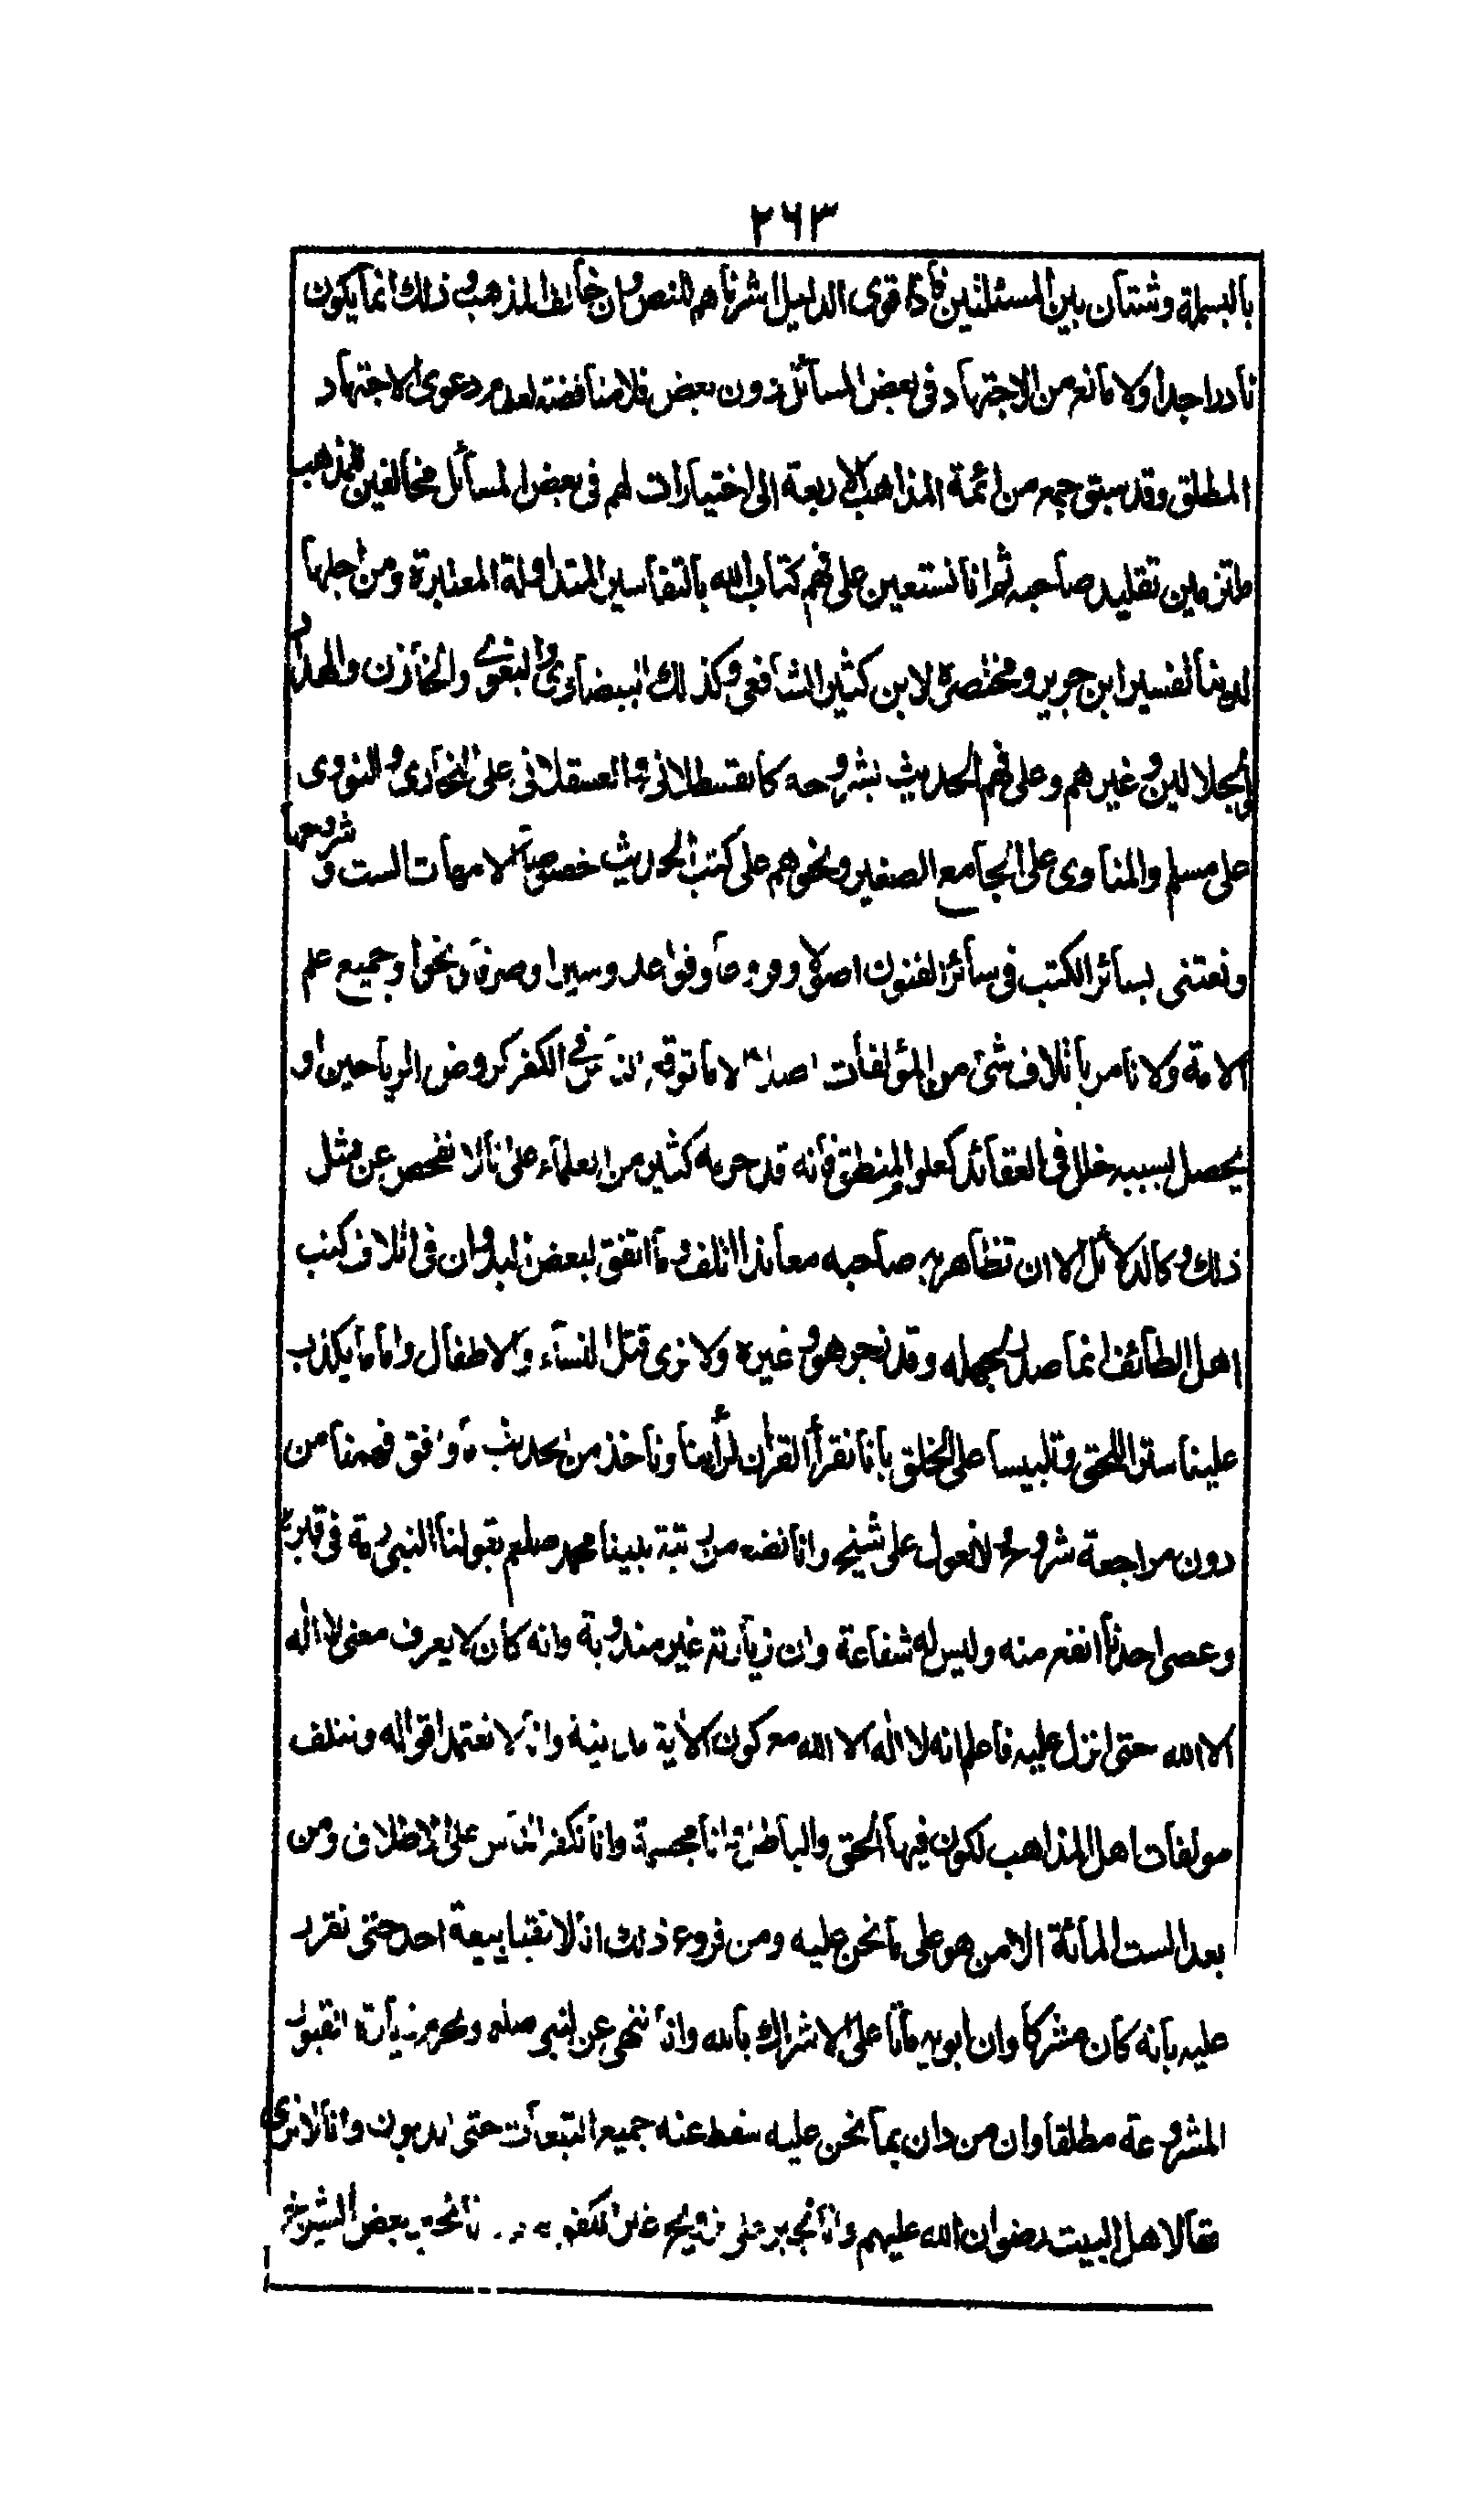 ٢٦٣
بالبسملة وشتان بين المسئلتين فاذا قوى الدليل ارشدناهم للنص وان خالف المذهب وذلك انما يكون
نادرا جدا ولا مانع من الاجتهاد في بعض المسائل دون بعض فلا مناقضة لعدم دعوى الاجتهاد
المطلق وقد سبق جمع من ائمة المذاهب الاربعة الى اختيارات لهم في بعض المسائل مخالفين للمذهب
ملتزمين تقليد صاحبه ثم انا نستعين على فهم كتاب الله بالتفاسير المتداولة المعتبرة ومن اجلها
لدينا تفسير ابن جرير ومختصره لابن كثير الشافعي وكذلك البيضاوي والبغوي والخازن والحداد
والجلالين وغيرهم وعلى فهم الحديث بشروحه كالقسطلاني والعسقلاني على البخاري والنووي
على مسلم والمناوى على الجامع الصغير ونحوهم على كتب الحديث خصوصا الامهات الست وشروحها
ونعتنى بسائر الكتب في سائر الفنون اصولا وفروعا وقواعد وسيرا وصرفا ونحوا وجميع علم
الامة ولا نامر باتلاف شئ من المؤلفات اصلا الا ما توقع الناس في الكفر كروض الرياحين او
يحصل بسببه خلل في العقائد كعلم المنطق فانه قد حرمه كثير من العلماء على انا لا نفحص عن مثل
ذلك وكالدلائل الا ان تظاهر به صاحبه معاندا اتلف وما اتفق لبعض البدوان في اتلاف كتب
اهل الطائف انما صدر لجهله وقد زجر هو وغيره ولا نرى قتل النساء والاطفال واما ما يكذب
علينا سترا للحق وتلبيسا على الخلق بانا نقرأ القران لرأينا وناخذ من الحديث ما وافق فهمنا من
دون مراجعة شروح ولا نعول على شيخ وانا نضع من رتبة نبينا محمد صلعم بقولنا النبي رمة في قبره
وعصى احدنا انفع منه وليس له شفاعة وان زيارته غير مندوبة وانه كان لا يعرف معنى لا اله
الا الله حتى انزل عليه فاعلم انه لا اله الا الله مع كون الاية مدينة وانا لا نعتمد اقواله ونتلف
مولفات اهل المذاهب لكون فيها الحق والباطل وانا مجسمة وانا نكفر الناس على الاطلاق ومن
بعد الست المائة الا من هو على ما نحن عليه ومن فروع ذلك انا لا نقبل بيعة احد حتى نقرر
عليه بانه كان مشركا وان ابويه ماتا على الاشراك بالله وانا ننهى عن النبي صلعم ونحرم زيارة القبور
المشروعة مطلقا وان من دان بما نحن عليه سقط عنه جميع التبعات حتى الديون وانا لا نرى
حقا لاهل البيت رضوان الله عليهم وانا نجبرهم على تزويج غير الكفو